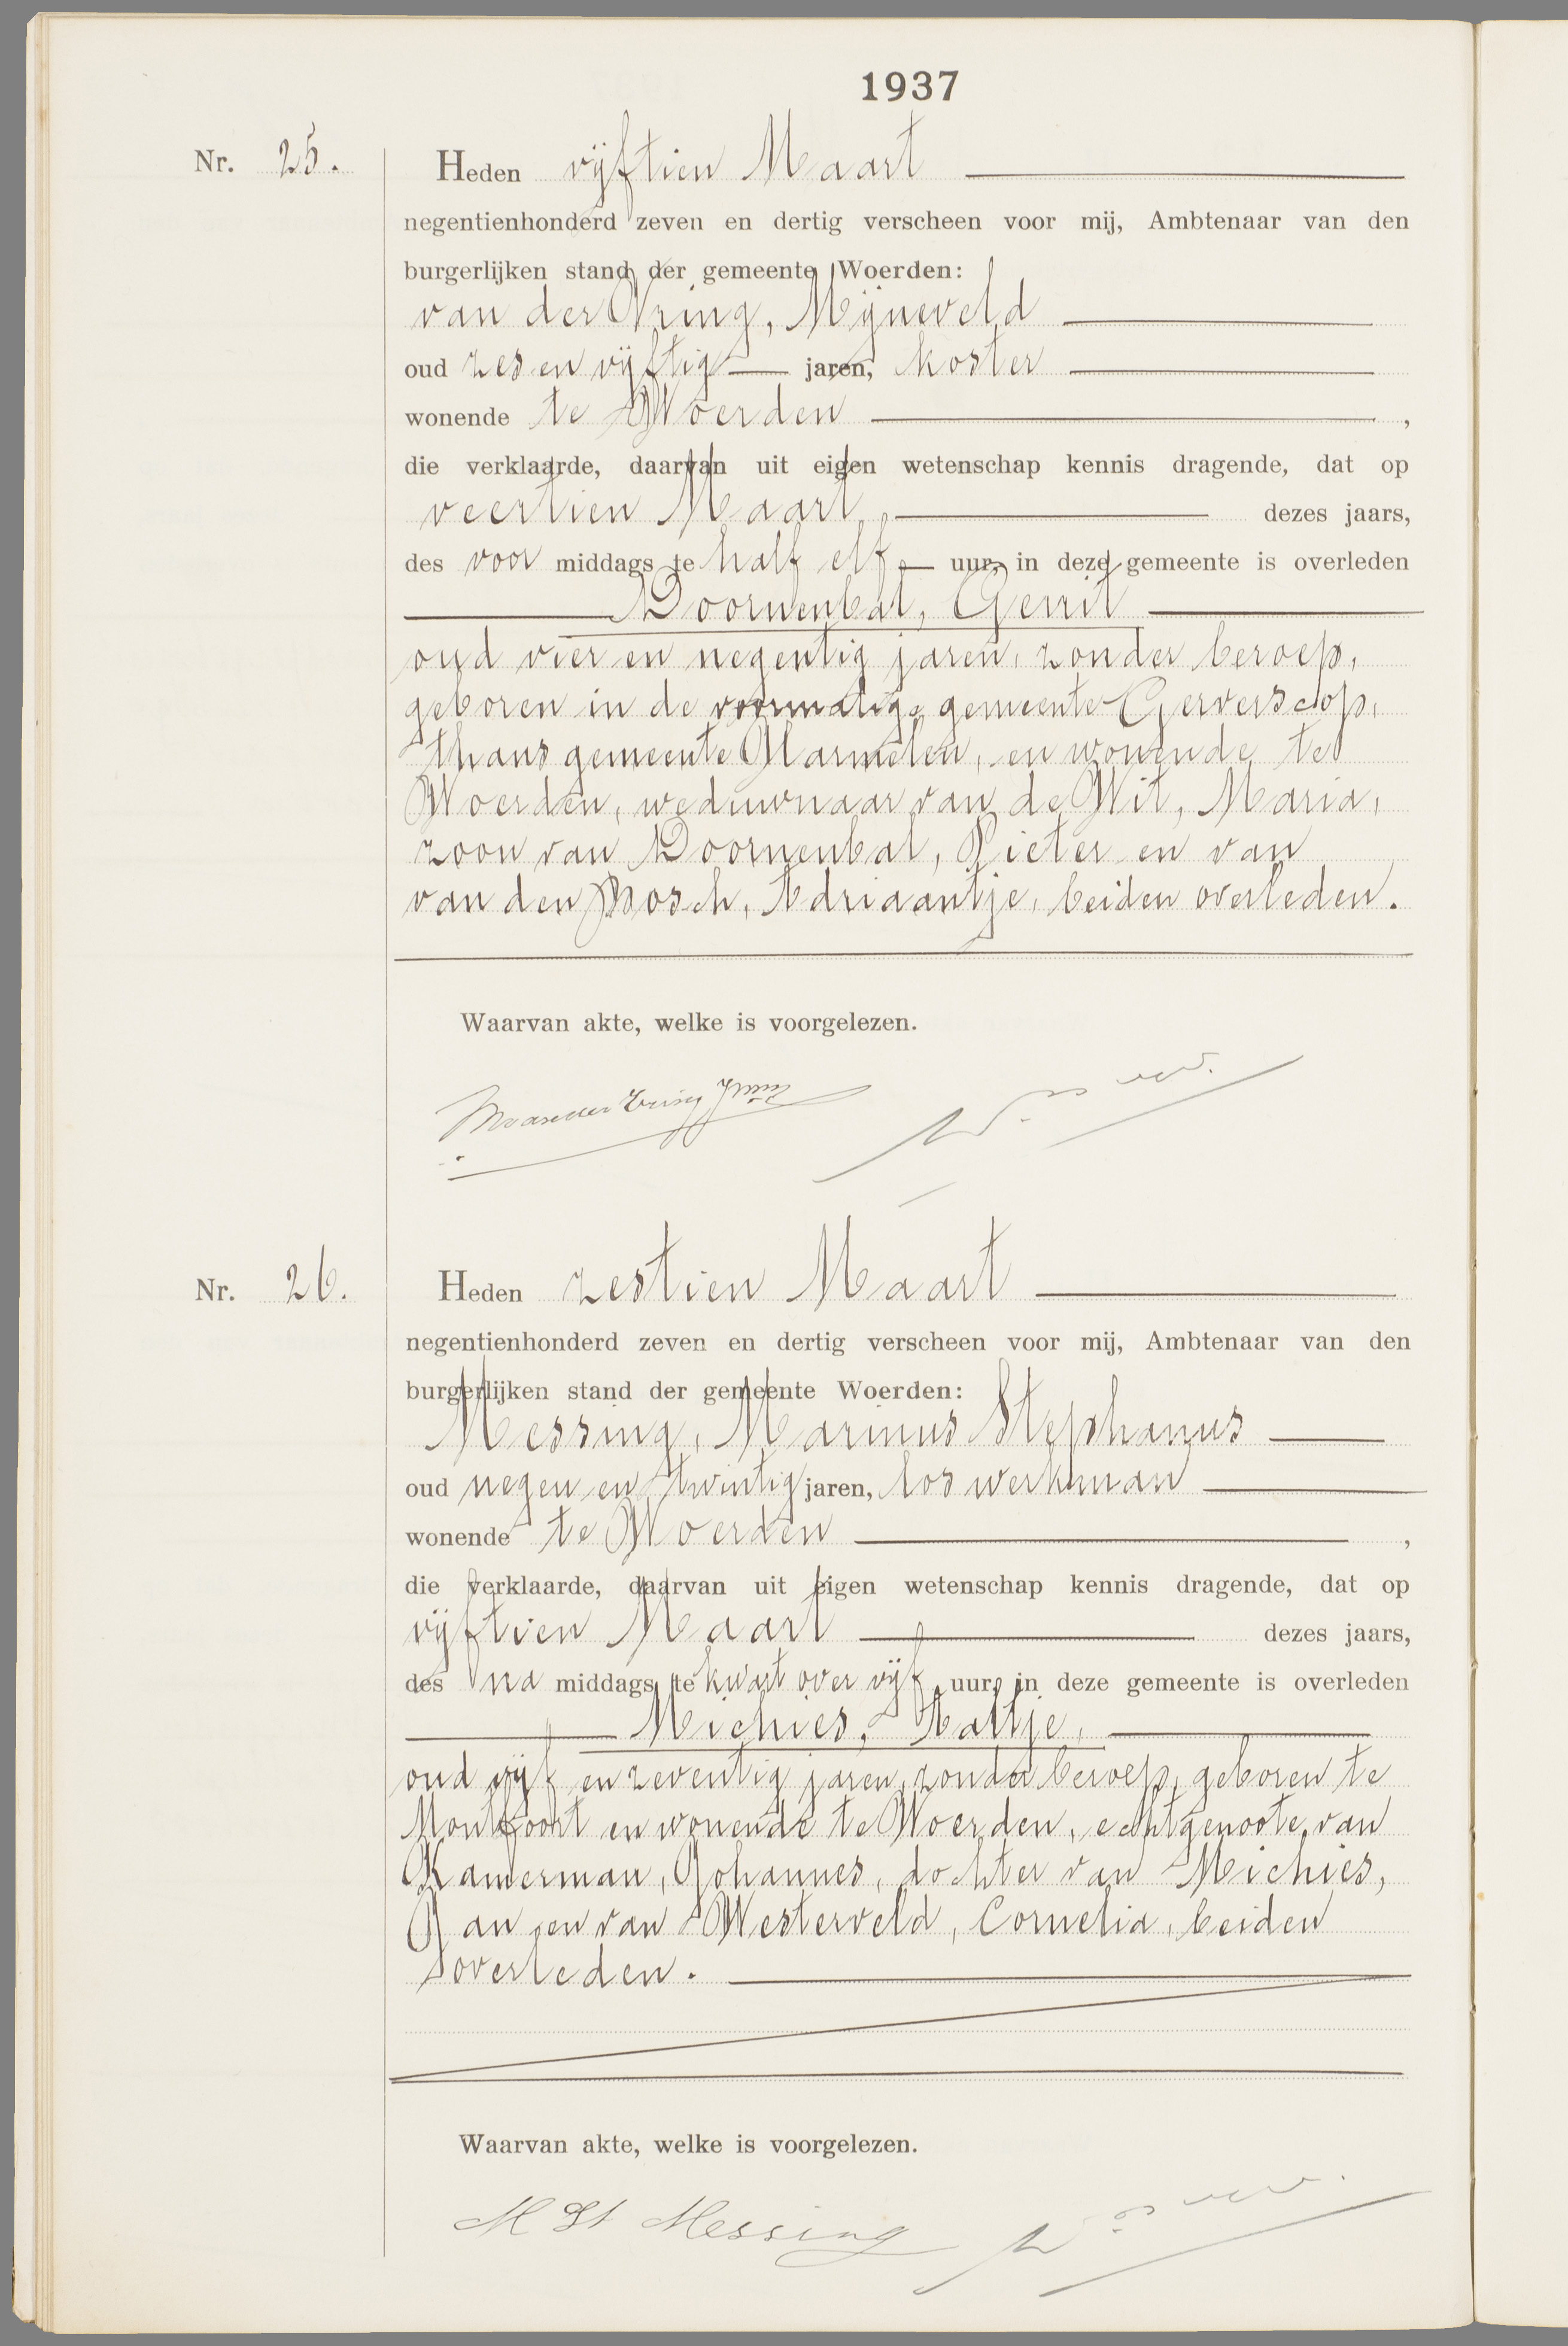 1937
Nr. 25. Heden vijftien Maart
negentienhonderd zeven en dertig verscheen voor mij, Ambtenaar van den
burgerlijken stand der gemeente Woerden:
van der Vring, Mijneveld
oud zes en vijftig jaren, koster
wonende te Woerden ,
die verklaarde, daarvan uit eigen wetenschap kennis dragende, dat op
veertien Maart dezes jaars,
des voor middags te half elf uur, in deze gemeente is overleden
Doornenbal, Gerrit
oud vier en negentig jaren, zonder beroep,
geboren in de voormalige gemeente Gerverscop,
thans gemeente Harmelen, en wonende te
Woerden, weduwnaar van de Wit, Maria,
zoon van Doornenbal, Pieter en van
van den Bosch, Adriaantje, beiden overleden.
Waarvan akte, welke is voorgelezen.
Nr. 26. Heden zestien Maart
negentienhonderd zeven en dertig verscheen voor mij, Ambtenaar van den
burgerlijken stand der gemeente Woerden:
Messing, Marinus Stephanus
oud negen en twintig jaren, los werkman
wonende te Woerden ,
die verklaarde, daarvan uit eigen wetenschap kennis dragende, dat op
vijftien Maart dezes jaars,
des na middags te kwart over vijf uur, in deze gemeente is overleden
Michies, Aaltje,
oud vijf en zeventig jaren, zonder beroep, geboren te
Montfoort en wonende te Woerden, echtgenoote van
Kamerman, Johannes, dochter van Michies,
Jan en van Westerveld, Cornelia, beiden
overleden.
Waarvan akte, welke is voorgelezen.
M St Messing